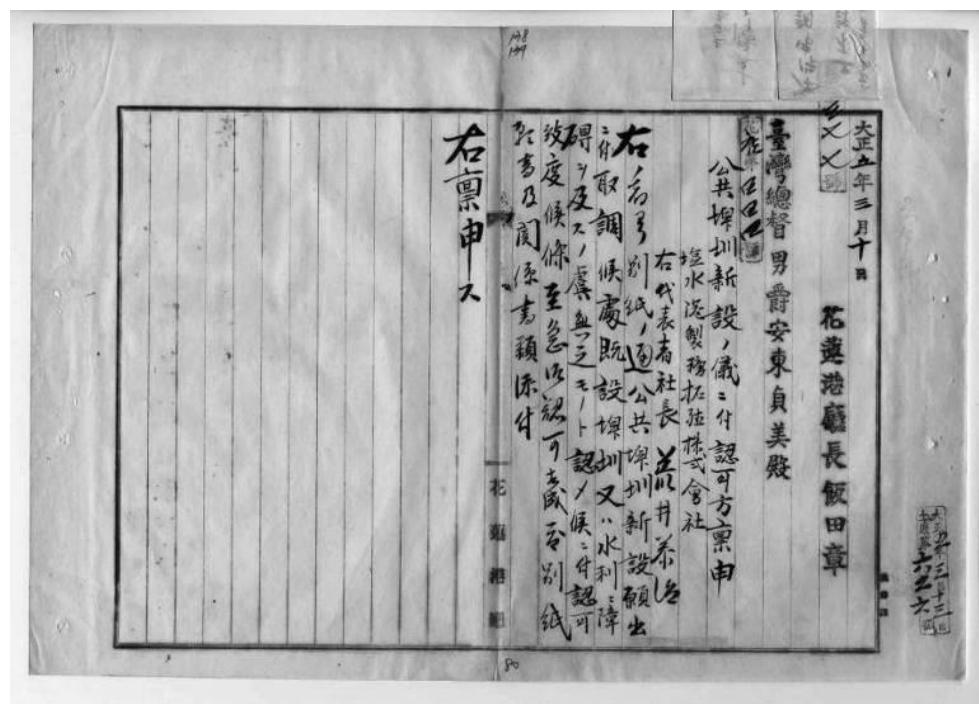 大正五年三月十日
花蓮港廳長飯田章
臺灣總督男爵安東貞美殿
公共埤圳新設ノ儀ニ付認可方稟申
塩水港製糖拓殖株式會社
右代表者社長 荒井泰治
右ノ者ヨリ別紙ノ通公共埤圳新設願出
ニ付取調候處既設埤圳又ハ水利ニ障
碍ヲ及スノ虞無之モノト認メ候ニ付認可
致度候條至急御認可
別紙
願書及関係書類添付
右稟申ス
花蓮港廳
198
199
80